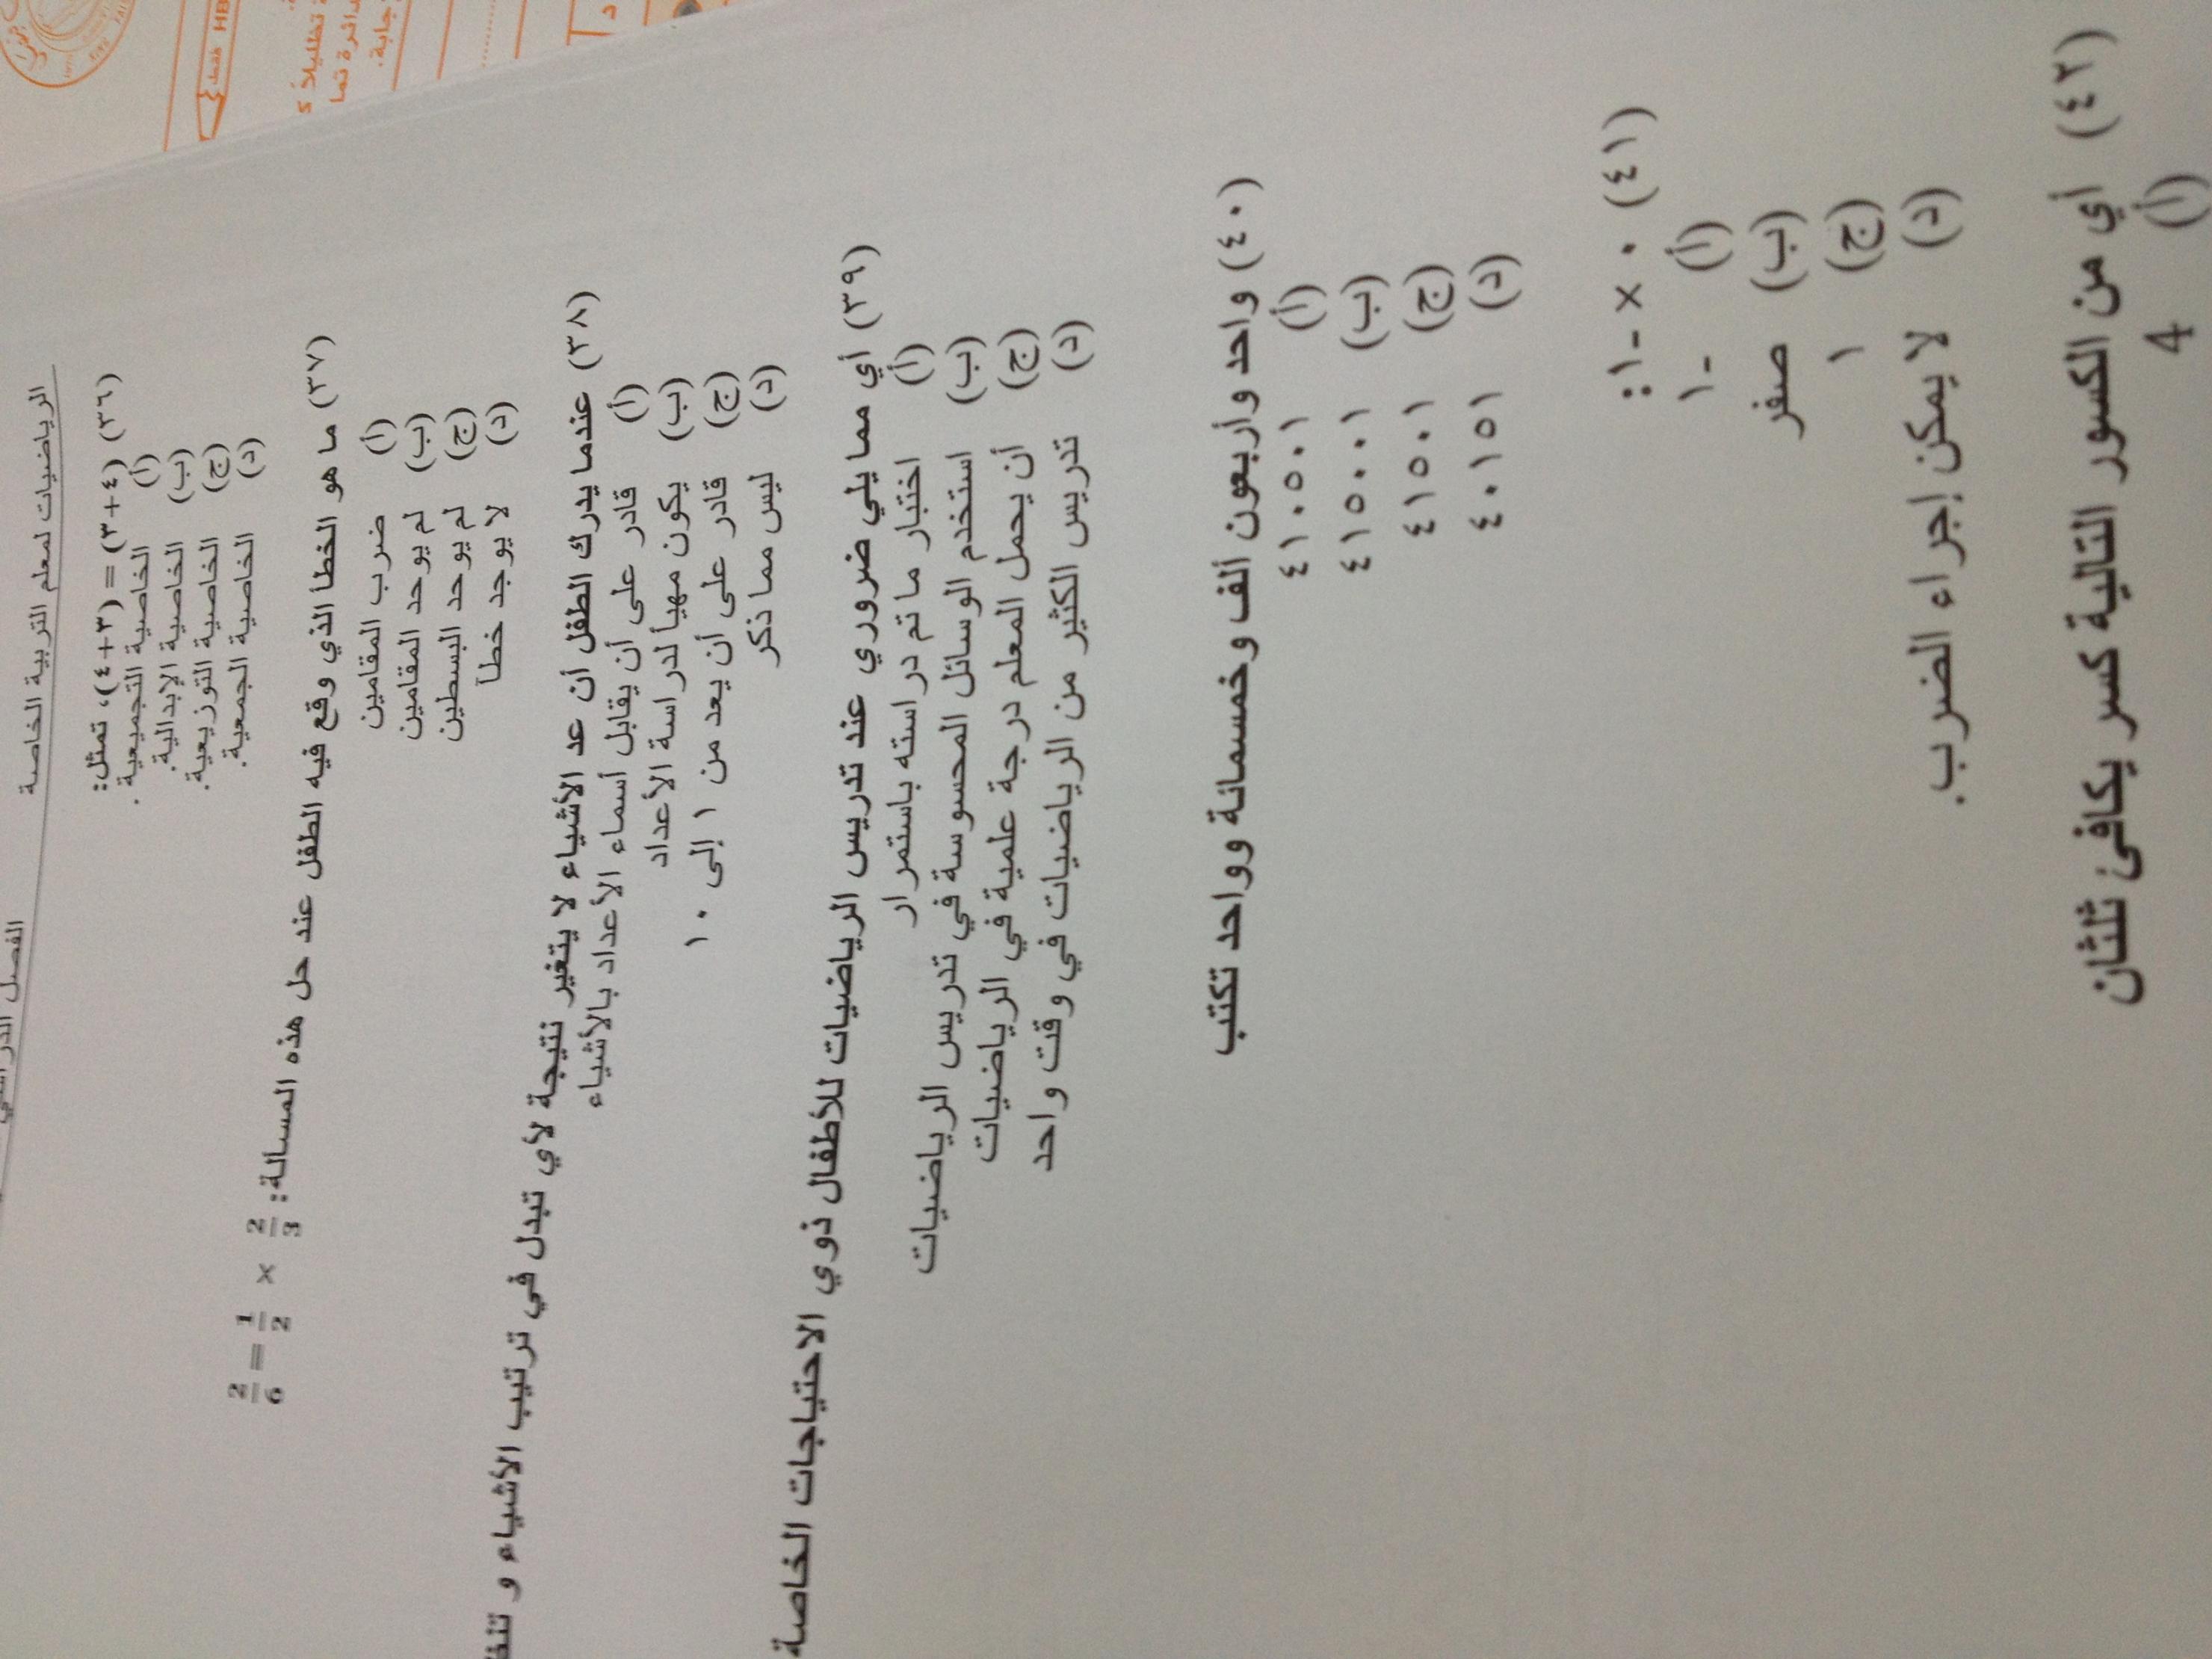 الرياضيات لمعلم التربية الخاصة
(٣٦) (٣+٤) = (٤+٣)، تمثل:
(أ) الخاصية التجميعية .
(ب) الخاصية الإبدالية.
(ج) الخاصية التوزيعية.
(د) الخاصية الجمعية.
(٣٧) ما هو الخطأ الذي وقع فيه الطفل عند حل هذه المسألة: 2/3 × 1/2 = 2/6
(أ) ضرب المقامين
(ب) لم يوحد المقامين
(ج) لم يوحد البسطين
(د) لا يوجد خطأ
(٣٨) عندما يدرك الطفل أن عد الأشياء لا يتغير نتيجة لأي تبدل في ترتيب الأشياء و
(أ) قادر على أن يقابل أسماء الأعداد بالأشياء
(ب) يكون مهيأ لدراسة الأعداد
(ج) قادر على أن يعد من ١ إلى ١٠
(د) ليس مما ذكر
(٣٩) أي مما يلي ضروري عند تدريس الرياضيات للأطفال ذوي الاحتياجات الخاصة
(أ) اختبار ما تم دراسته باستمرار
(ب) استخدم الوسائل المحسوسة في تدريس الرياضيات
(ج) أن يحمل المعلم درجة علمية في الرياضيات
(د) تدريس الكثير من الرياضيات في وقت واحد
(٤٠) واحد وأربعون ألف وخمسمائة وواحد تكتب
(أ) ٤١٠٥٠١
(ب) ٤١٥٠٠١
(ج) ٤١٥٠١
(د) ٤٠١٥١
(٤١) ٠ × -١:
(أ) -١
(ب) صفر
(ج) ١
(د) لا يمكن إجراء الضرب.
(٤٢) أي من الكسور التالية كسر يكافئ ثلثان
(أ) 4
HB فقط
د